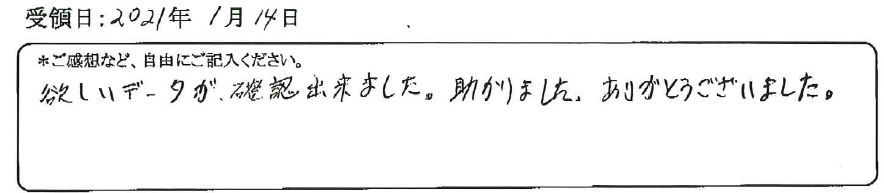 受領日:2021年 1月 14日
*ご感想など、自由にご記入ください。
欲しいデータが、確認出来ました。助かりました、ありがとうございました。